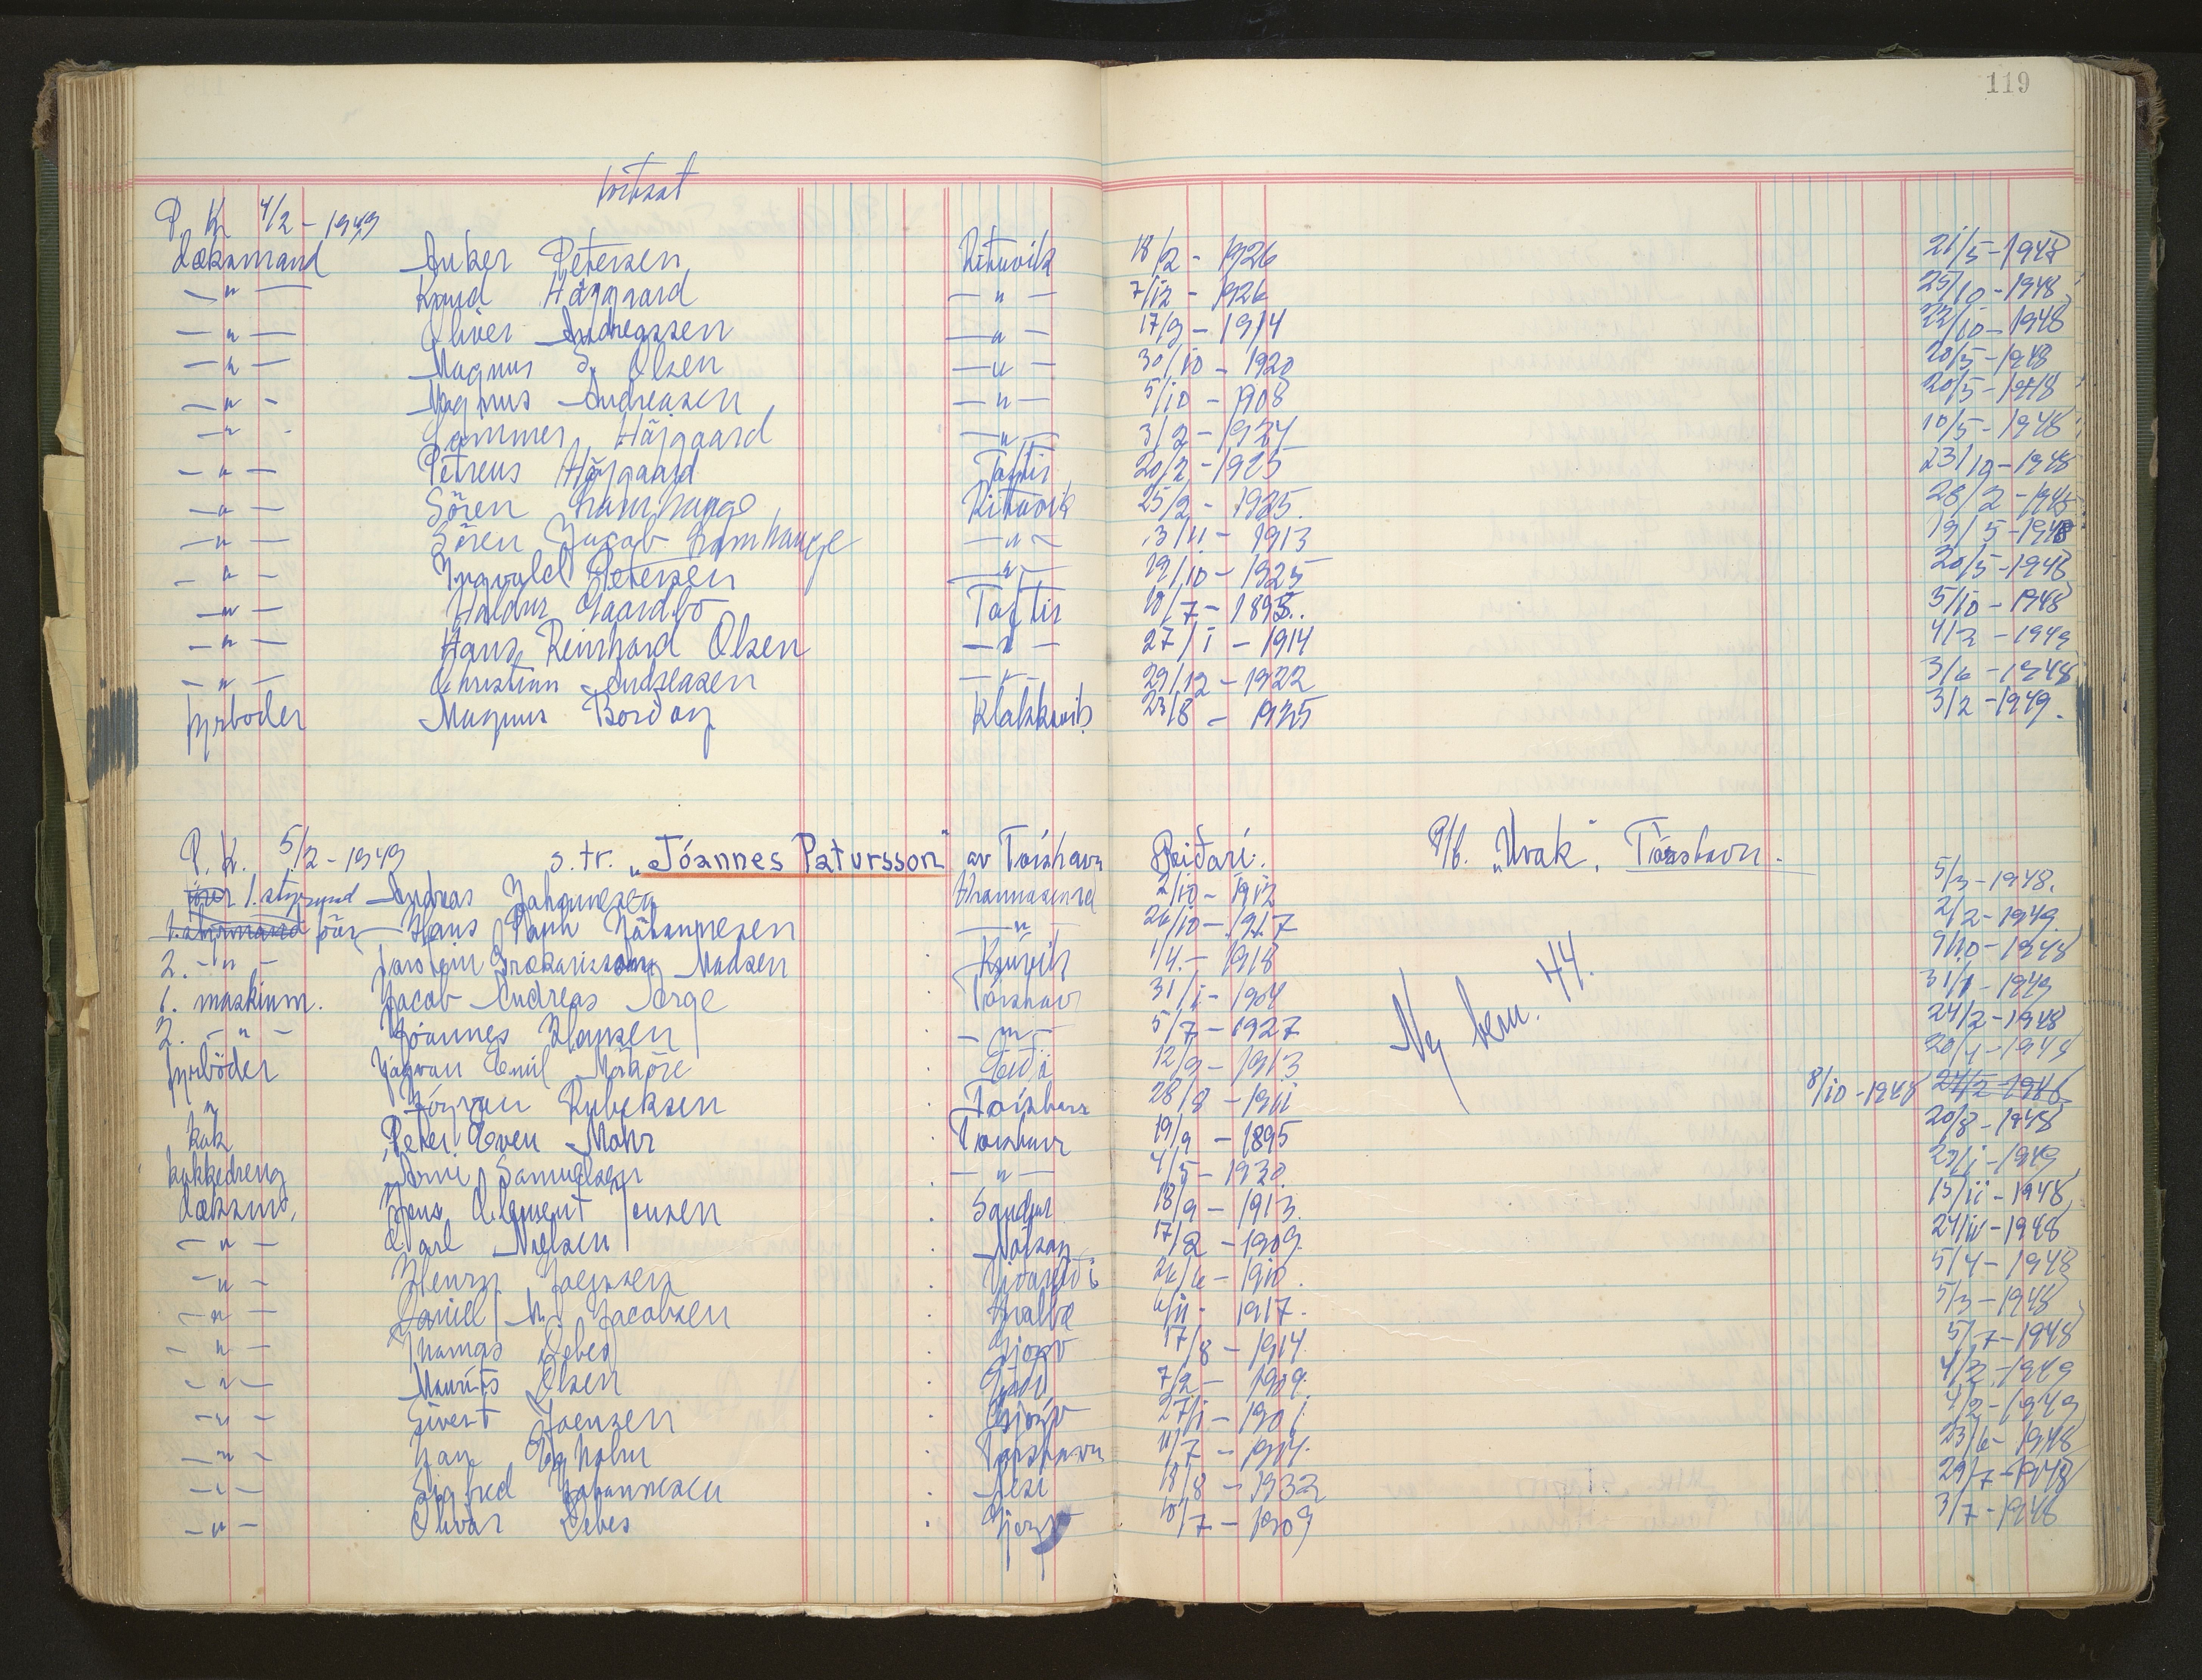 119
fortsat
P. K. 4/2 - 1949
dæksmand Anker Petersen Rituvik 18/2 - 1926 21/5 - 1948
— " — Knud Højgaard — " — 7/12 - 1926 25/10 - 1948
— " — Oliver Andreassen — " — 17/9 - 1914 22/10 - 1948
— " — Magnus S. Olsen — " — 30/10 - 1920 20/5 - 1948
— " — Magnus Andreasen — " — 5/10 - 1908 20/5 - 1948
— " — Højgaard — " — 3/2 - 1924 10/5 - 1948
— " — Petreus Højgaard Toftir 20/2 - 1925 23/10 - 1948
— " — Sören Ramhauge Rituvik 25/2 - 1925. 28/2 - 1945
— " — Sören Jacob Ramhauge — " — 3/11 - 1913 19/5 - 1948
— " — Ingvald Petersen — " — 19/10 - 1925 20/5 - 1948
— " — Haldur Gaardbo Toftir 10/7 - 1895. 5/10 - 1948
— " — Hans Reinhard Olsen — " — 27/1 - 1914 4/2 - 1949
— " — Christian Andreasen — " — 29/12 - 1922 3/6 - 1948
fyrböder Magnus Bordoy Klakksvik 23/8 - 1925 3/2 - 1949.
P. K. 5/2 - 1949 s. tr. "Jóannes Patursson" av Tórshavn Reiðari: P/f. "Hvak", Tórshavn.
1. styrmand Andreas Johannesen 2/10 - 1912 5/3 - 1948.
1. styrmand förer Hans Paul Jóhannesen — " — 26/10 - 1917 2/2 - 1949.
2. — " — Madsen Kvívík 1/4 - 1918 9/10 - 1948
1. maskinm. Jacob Andreas Tórshavn 31/1 - 1904 31/1 - 1949
2. — " — Jóannes Hansen — " — 5/7 - 1927 24/2 - 1948
Ny bem. 44.
fyrböder Jógvan Emil Mörköre Eiði 12/9 - 1913 20/1 - 1949
" Jógvan Rubeksen Tórshavn 28/8 - 1911 8/10 - 1948 24/2 - 1948
kok Peter Even Mohr Tórshavn 19/9 - 1895 20/8 - 1948
kokkedreng Arni Samuelsen — " — 4/5 - 1930. 29/1 - 1949
dæksmd. Hans Clement Jensen Sandur 18/9 - 1913. 15/11 - 1948
— " — Carl Nielsen Nólsoy 17/2 - 1909. 24/11 - 1948
— " — Henry Joensen 26/6 - 1910. 5/4 - 1948
— " — Daniel M. Jacobsen Hvalba 6/11 - 1917. 5/3 - 1948
— " — Thomas Debes Gjógv 17/8 - 1914. 5/7 - 1948
— " — Maurits Olsen 7/2 - 1909. 4/2 - 1949
— " — Sivert Joensen Gjógv 27/1 - 1901. 4/2 - 1949
— " — Egholm Tórshavn 11/7 - 1914. 23/6 - 1948
— " — Sigfred Johannesen Nesi 18/8 - 1932 29/7 - 1948
— " — Olivar Debes Gjógv 10/7 - 1909 3/7 - 1948